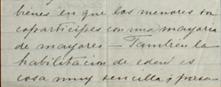 bienes en que los menores son
coparticipes con una mayoria
de mayores — Tambien la
habilitacion de edad es
cosa muy sencilla i